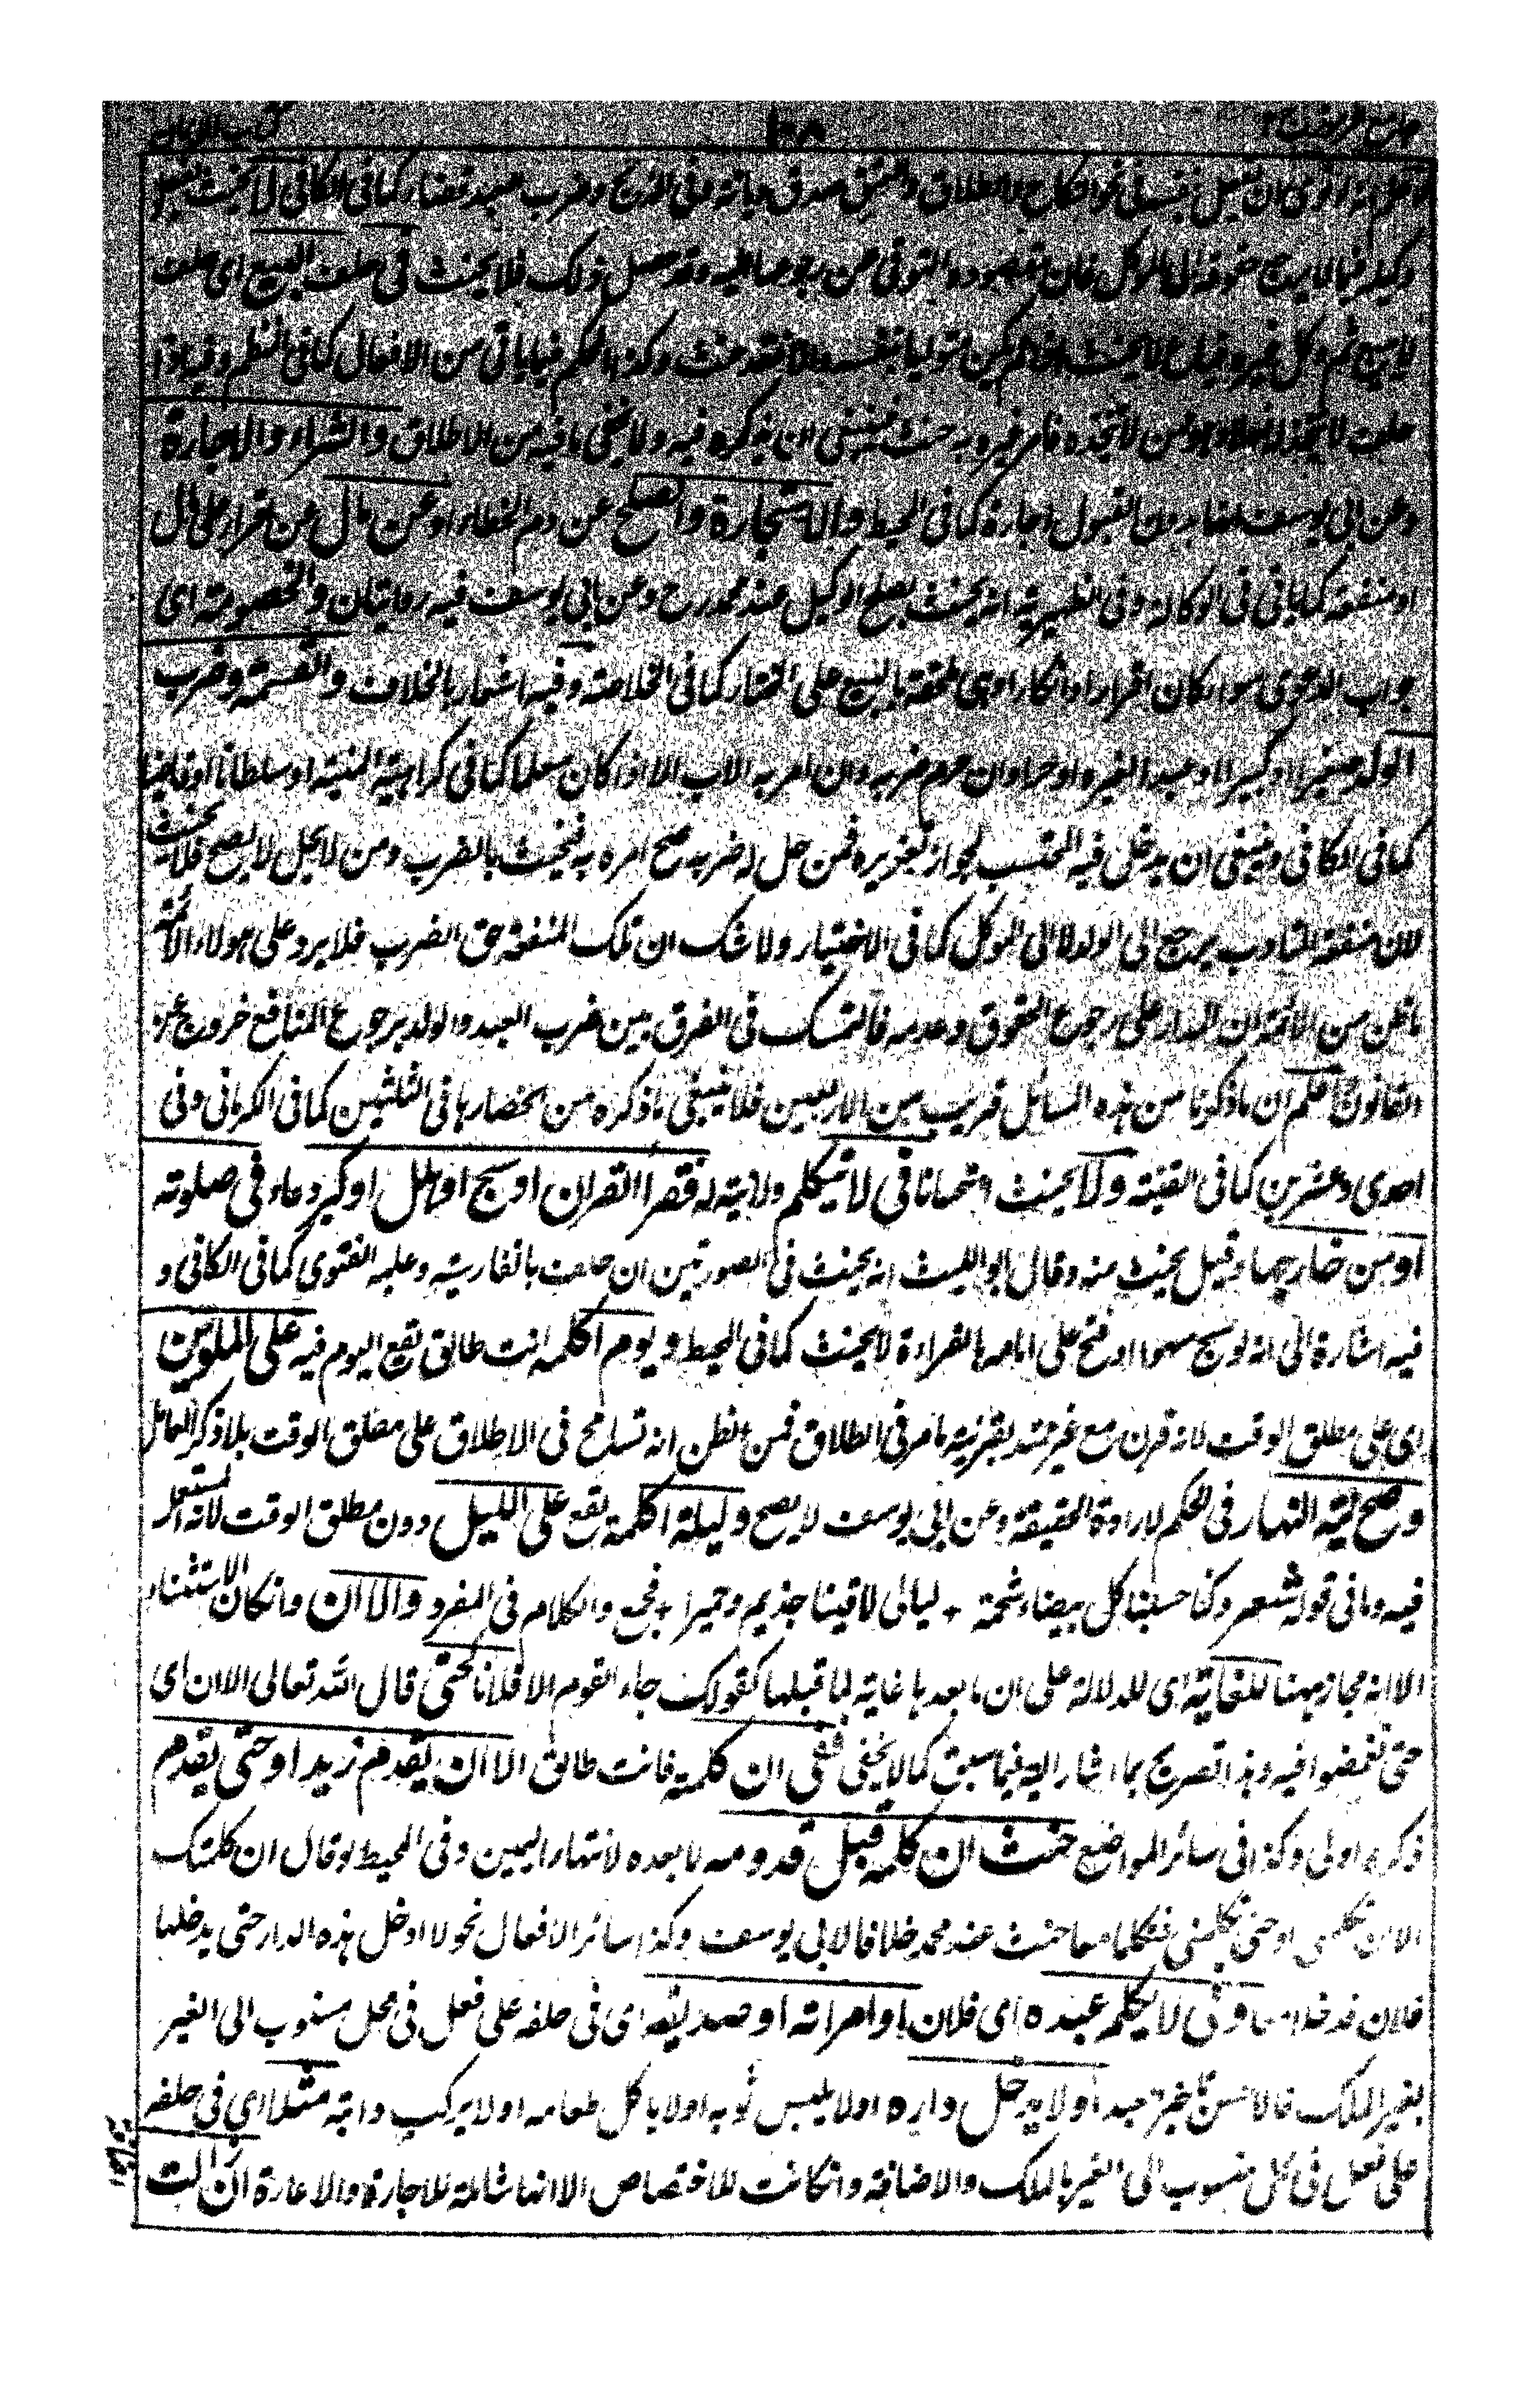 جامع الرموز ج ٢ ١٠٨ كتاب الايمان
ان نوى ان يفعل بنفسه فى نحو النكاح والطلاق والعتق صدق ديانة وفى الذبح وضرب العبد قضاء كما فى الكافى لا يحنث بفعل
وكيله فيما لا يرجع حقوقه الى الموكل فان مقصوده التوقى عن رجوعها اليه وقد حصل ذلك فلا يحنث فى حلف البيع اى حلف
لا يبيع ثم وكل غيره فباع لا يحنث كما فى النظم وفيه اذا
حلف لا يتخذ فامر غيره به حنث فينبغى ان يذكره فيه ولا يخفى ما فيه من الاطلاق والشراء والاجارة
وعن ابى يوسف القبول اجارة كما فى المحيط والاستجارة والصلح عن دم الخطاء او عن مال عن اقرار على مال
او منفعة كما ياتى فى الوكالة وفى الظهيرية انه يحنث بصلح الوكيل عند محمد رح وعن ابى يوسف فيه روايتان والخصومة اى
جواب الدعوى سواء كان اقرارا او انكارا وهى ملحقة بالبيع على المختار كما فى الخلاصة وفيه اشعار بالخلاف والقسمة وضرب
الولد صغيرا او كبيرا او عبد الغير او حرا وان حرم ضربه وان امر به الاب الا اذا كان معلما كما فى كراهية المنية او سلطانا او قاضيا
كما فى الكافى وينبغى ان يدخل فيه المحتسب لجواز تعزيره فمن حل له ضربه صح امره به فيحنث بالضرب ومن لا يحل لا يصح فلا يحنث
لان منفعة التاديب يرجع الى الولد لا الى الموكل كما فى الاختيار ولا شك ان تلك المنفعة حق الضرب فلا يرد على هولاء الائمة
ما ظن من الائمة ان المدار على رجوع الحقوق وعدمه فالتمسك فى الفرق بين ضرب العبد والولد برجوع المنافع خروج عن
القانون فاعلم ان ما ذكرنا من هذه المسايل قريب من الاربعين فلا ينبغى ما ذكره من انحصارها فى الثلثين كما فى الكرمانى وفى
احدى وعشرين كما فى القنية ولا يحنث استحسانا فى لا يتكلم ولا نية له فقرأ القران او سبح او هلل او كبر دعاء فى صلوته
او من خارجها وقيل يحنث منه وقال ابو الليث انه يحنث فى الصورتين ان حلف بالفارسية وعليه الفتوى كما فى الكافى و
فيه اشارة الى انه لو سبح سهوا او فتح على امامه بالقراءة لا يحنث كما فى المحيط و يوم اكلمه انت طالق يقع اليوم فيه على الملوين
اى على مطلق الوقت لانه قرن مع غير ممتد بقرينة ما مر فى الطلاق فمن الظن انه تسامح فى الاطلاق على مطلق الوقت بلا ذكر العامل
وصح نية النهار فى الحكم لارادة الحقيقة وعن ابى يوسف لا يصح وليلة اكلمه يقع على الليل دون مطلق الوقت لانه المستعمل
فيه وما فى قوله شعر وكنا حسبنا كل بيضاء شحمة + ليالى لاقينا جذيم وحميرا + فجمع والكلام فى المفرد والا ان وان كان الاستثناء
الا انه مجاز ههنا للغاية اى للدلالة على ان ما بعدها غاية لما قبلها كقولك جاء القوم الا فلانا كحتى قال الله تعالى الا ان اى
حتى تغمضوا فيه وهذا تصريح بما اشار اليه فيما سبق كما لا يخفى ففى ان كلمته فانت طالق الا ان يقدم زيد او حتى يقدم
ذكره اولى وكذا فى سائر المواضع حنث ان كلمه قبل قدومه لا بعده لانتهاء اليمين وفى المحيط لو قال ان كلمتك
الا ان تكلمنى او حتى تكلمنى فتكلما معا حنث عند محمد خلافا لابى يوسف وكذا سائر الافعال نحو لا ادخل هذه الدار حتى يدخلها
فلان فدخلا معا وفى لا يكلم عبده اى فلان او امراته او صديقه اى فى حلفه على فعل فى محل منسوب الى الغير
بغير الملك عبده او لا يدخل داره او لا يلبس ثوبه او لا ياكل طعامه او لا يركب دابته مثلا اى فى حلفه
على فعل فى محل منسوب الى الغير بالملك والاضافة وان كانت للاختصاص الا انها شاملة للاجارة والاعارة ان زالت